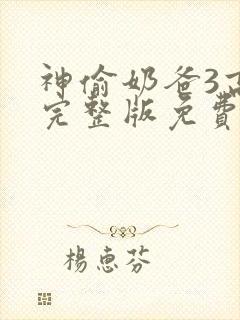 神偷奶爸3高
完整版免費
楊惠芬